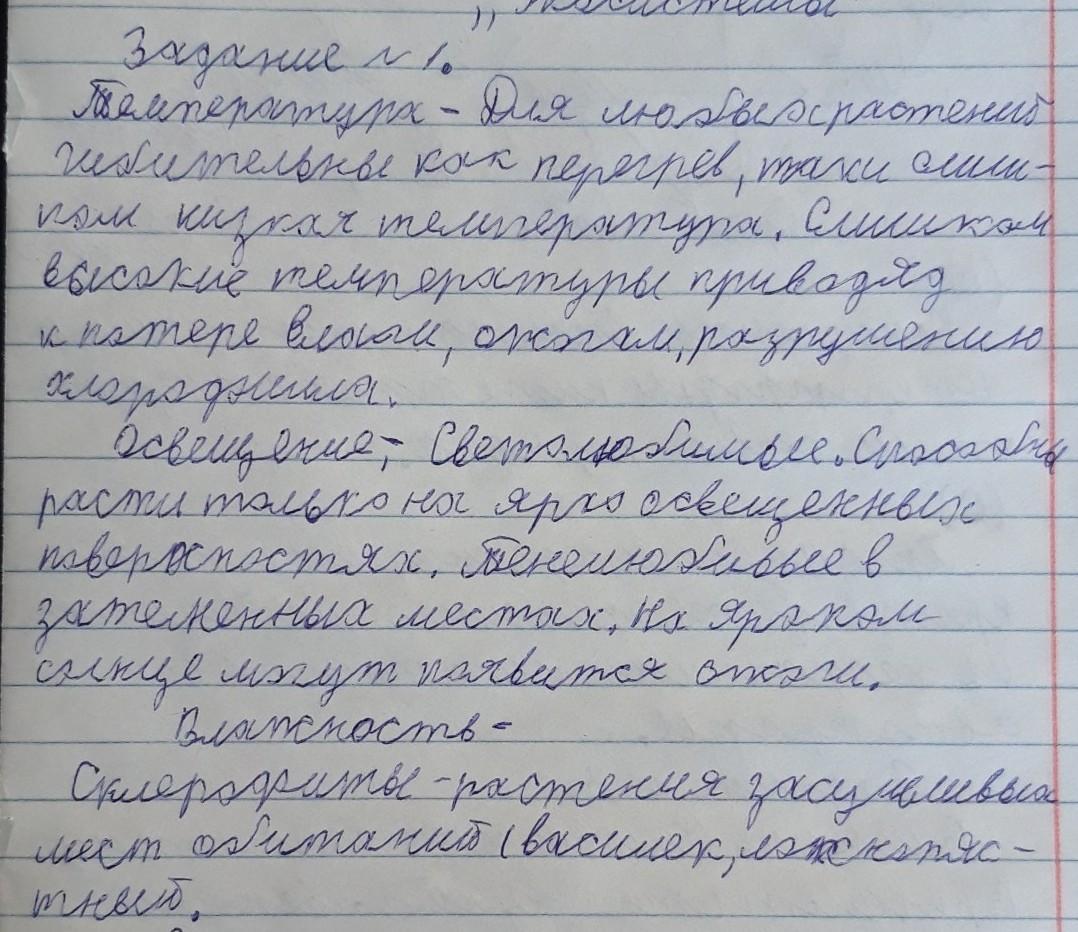 „ Экосистемы
Задание № 1.
Температура - Для любых растений
гибительны как перегрев, таки слиш-
ком низкая температура. Слишком
высокие температуры приводяд
к потере влаги, ожогам, разрушению
хлорофилла.
Освещение, - Светолюбимые. Способны
расти только на ярко освещенных
поверхностях. Тенелюбивые в
затемненных местах. На ярком
солнце могут появится ожоги.
Влажность -
Склерофиты - растения засушливых
мест обитаний (василек, ложнопяс-
тный.